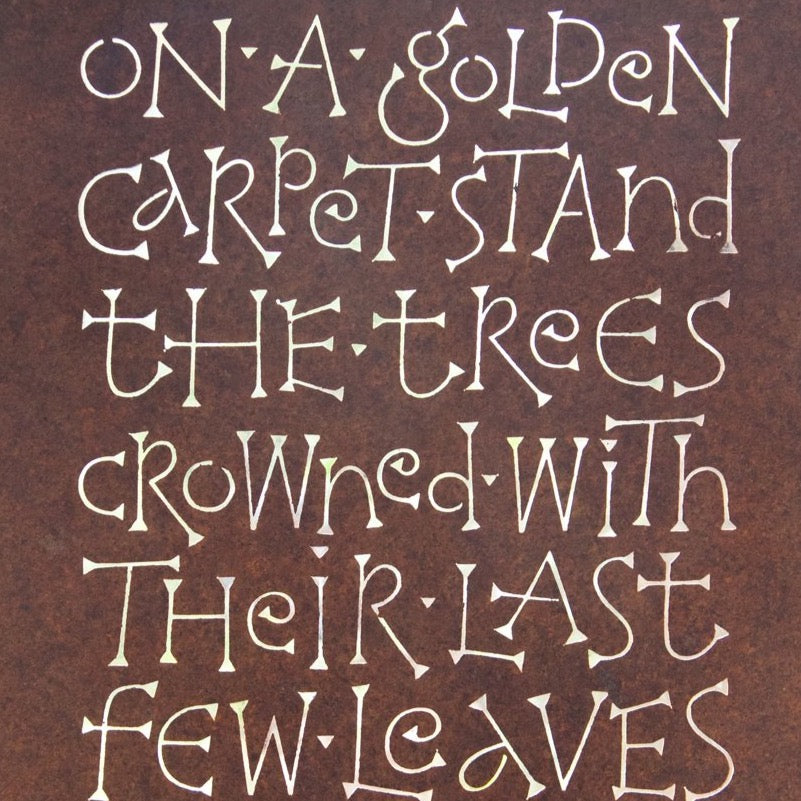 ON · A · gOLDeN
CARPeT · STANd
tHE · tReES
CROWNed · WiTh
THeiR · LAST
fEW · LeAVES